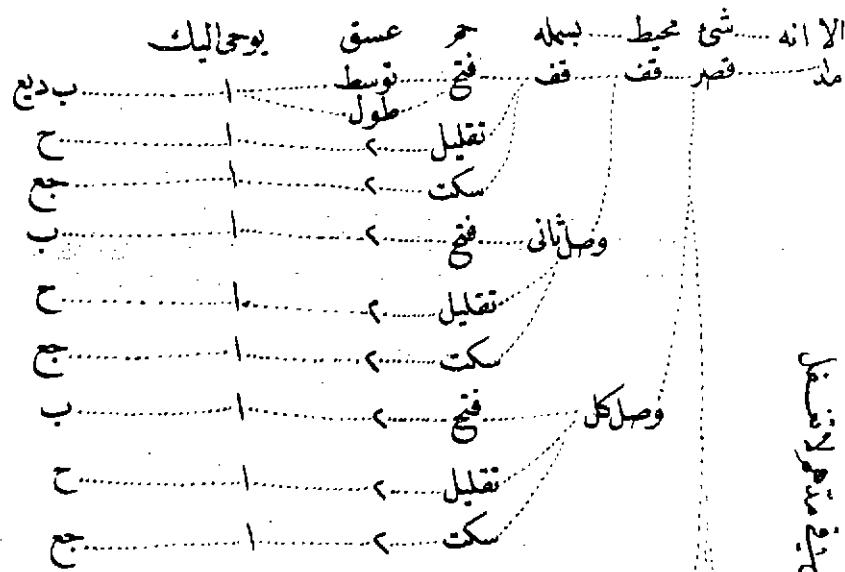 الا انه ..... شئ محيط ..... بسمله حم عسق يوحى اليك
مد قصر قف قف فتح توسط ١ ب د يع
طول
تقليل ٢ ١ ح
سكت ٢ ١ جع
وصل ثانى فتح ٢ ١ ب
تقليل ٢ ١ ح
سكت ٢ ١ جع
وصل كل فتح ٢ ١ ب
تقليل ٢ ١ ح
سكت ٢ ١ جع
لا تغفل